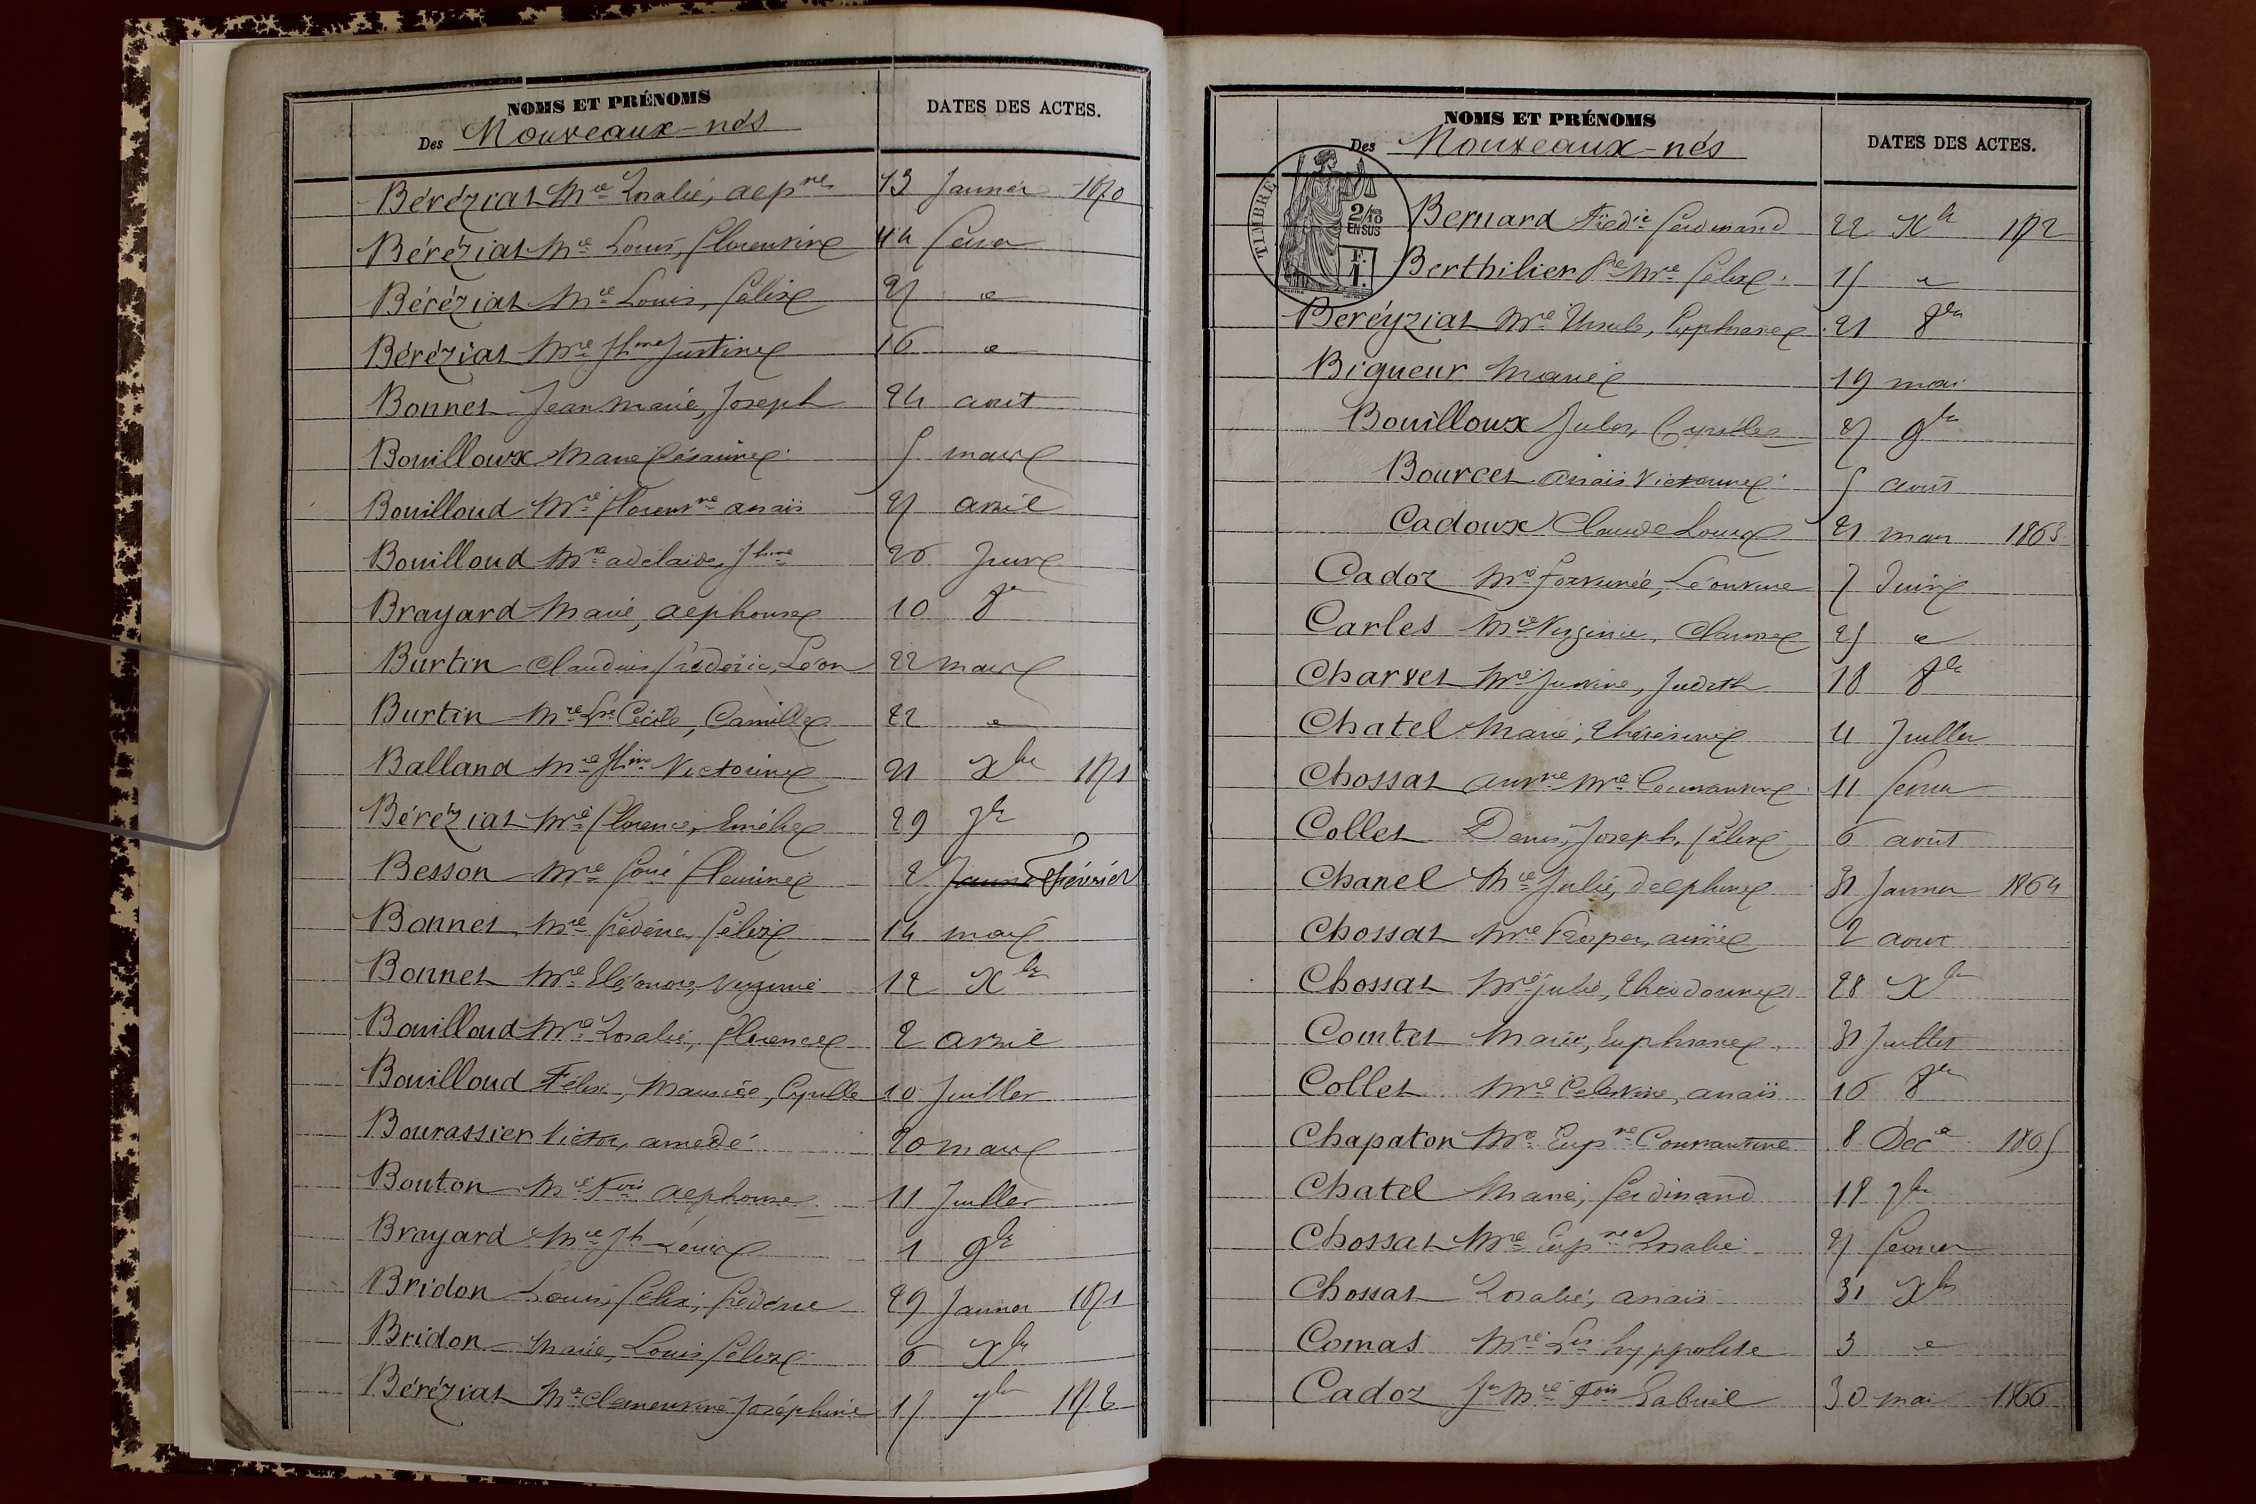 NOMS ET PRÉNOMS
Des Nouveaux-nés
DATES DES ACTES.
Béréziat Mie Rosalie, Alpne 13 Janvier 1870
Béréziat Mie Louis, Florentine 14 février
Béréziat Mie Louis, Félix 27 "
Béréziat Mie Jhne Justine 16 "
Bonnet Jean Marie, Joseph 24 aout
Bouilloux Marie Césarine 5 mars
Bouilloud Mie Florentne anaïs 27 avril
Bouilloud Mie adelaïde, Jhne 26 Juin
Brayard Marie, alphonse 10 8re
Burtin Claudius frédéric, Léon 22 mars
Burtin Mie Lse Cécile, Camille 22 "
Balland Mie Jhine Victorine 21 Xbre 1871
Béréziat Mie Florence, Emélie 29 7bre
Besson Mie fois flavine 2 Janvier février
Bonnet Mie frédéric, félix 14 mars
Bonnet Mie Eléonore, Virginie 12 Xbre
Bouilloud Mie Rosalie, florence 2 avril
Bouilloud Félix, Maurice, Cyrille 10 Juillet
Bourassier Victor, amedé 20 mars
Bouton Mie Fois alphonse 11 Juillet
Brayard Mie Jh Louis 1 9bre
Bridon Louis, félix, frédéric 29 Janvier 1871
Bridon Marie, Louis félix 6 Xbre
Béréziat Mie Clementine Joséphine 17 7bre 1872
NOMS ET PRÉNOMS
Des Nouveaux-nés
DATES DES ACTES.
TIMBRE
2/10
EN SUS
F.
1.
Bernard Frédic ferdinand 22 Xbre 1872
Berthilier Fse Mie félix 15 "
Beréyziat Mie Ursule, Euphrasie 21 8bre
Biqueur Marie 19 mai
Bouilloux Jules, Cyrille 27 9bre
Bourcet anaïs Victorine 5 août
Cadoux Claude Louis 21 mars 1863
Cadoz Mie fortunée, Léontine 7 Juin
Carles Mie Virginie, Clarisse 25 "
Charvet Mie Justine, Judith 18 8bre
Chatel Marie, Thérésine 4 Juillet
Chossat Antne Mie Constantine 11 février
Collet Denis, Joseph, félix 6 août
Chanel Mie Julie, Delphine 31 Janvier 1864
Chossat Mie Prosper, aimé 2 aout
Chossat Mie Julie, Théodorine 28 Xbre
Comtet Marie, Euphrasie 31 Juillet
Collet Mie Celestine, anaïs 16 8bre
Chapaton Mie Eupne Constantine 8 Decre 1865
Chatel Marie, ferdinand 18 7bre
Chossat Mie Eupne Rosalie 27 février
Chossat Rosalie, anaïs 31 Xbre
Comas Mie Ls hyppolite 3 "
Cadoz Jn Mie Fois Gabriel 30 mai 1866